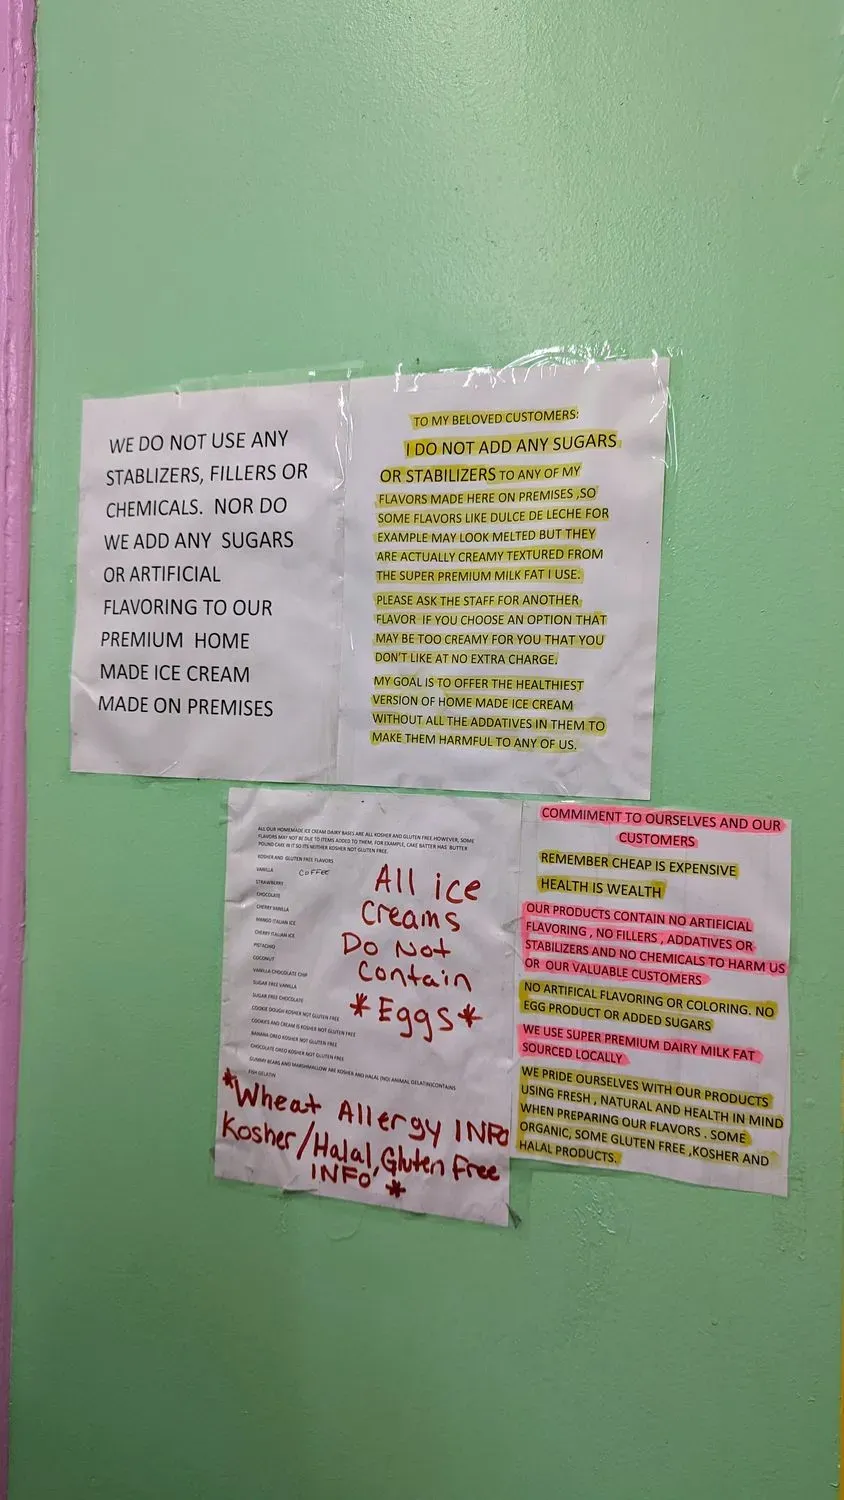 WE DO NOT USE ANY
STABLIZERS, FILLERS OR
CHEMICALS. NOR DO
WE ADD ANY SUGARS
OR ARTIFICIAL
FLAVORING TO OUR
PREMIUM HOME
MADE ICE CREAM
MADE ON PREMISES
TO MY BELOVED CUSTOMERS:
I DO NOT ADD ANY SUGARS
OR STABILIZERS TO ANY OF MY
FLAVORS MADE HERE ON PREMISES ,SO
SOME FLAVORS LIKE DULCE DE LECHE FOR
EXAMPLE MAY LOOK MELTED BUT THEY
ARE ACTUALLY CREAMY TEXTURED FROM
THE SUPER PREMIUM MILK FAT I USE.
PLEASE ASK THE STAFF FOR ANOTHER
FLAVOR IF YOU CHOOSE AN OPTION THAT
MAY BE TOO CREAMY FOR YOU THAT YOU
DON'T LIKE AT NO EXTRA CHARGE.
MY GOAL IS TO OFFER THE HEALTHIEST
VERSION OF HOME MADE ICE CREAM
WITHOUT ALL THE ADDATIVES IN THEM TO
MAKE THEM HARMFUL TO ANY OF US.
ALL OUR HOMEMADE ICE CREAM DAIRY BASES ARE ALL KOSHER AND GLUTEN FREE.HOWEVER, SOME
FLAVORS MAY NOT BE DUE TO ITEMS ADDED TO THEM, FOR EXAMPLE, CAKE BATTER HAS BUTTER
POUND CAKE IN IT SO ITS NEITHER KOSHER NOT GLUTEN FREE.
KOSHER AND GLUTEN FREE FLAVORS
VANILLA COFFEE
STRAWBERRY
CHOCOLATE
CHERRY VANILLA
MANGO ITALIAN ICE
CHERRY ITALIAN ICE
PISTACHIO
COCONUT
VANILLA CHOCOLATE CHIP
SUGAR FREE VANILLA
SUGAR FREE CHOCOLATE
COOKIE DOUGH KOSHER NOT GLUTEN FREE
COOKIES AND CREAM IS KOSHER NOT GLUTEN FREE
BANANA OREO KOSHER NOT GLUTEN FREE
CHOCOLATE OREO KOSHER NOT GLUTEN FREE
GUMMY BEARS AND MARSHMALLOW ARE KOSHER AND HALAL (NO) ANIMAL GELATIN)CONTAINS
FISH GELATIN
All ice
Creams
Do Not
Contain
*Eggs*
*Wheat Allergy INFO
Kosher/Halal, Gluten Free
INFO *
COMMIMENT TO OURSELVES AND OUR
CUSTOMERS
REMEMBER CHEAP IS EXPENSIVE
HEALTH IS WEALTH
OUR PRODUCTS CONTAIN NO ARTIFICIAL
FLAVORING , NO FILLERS , ADDATIVES OR
STABILIZERS AND NO CHEMICALS TO HARM US
OR OUR VALUABLE CUSTOMERS
NO ARTIFICAL FLAVORING OR COLORING. NO
EGG PRODUCT OR ADDED SUGARS
WE USE SUPER PREMIUM DAIRY MILK FAT
SOURCED LOCALLY
WE PRIDE OURSELVES WITH OUR PRODUCTS
USING FRESH , NATURAL AND HEALTH IN MIND
WHEN PREPARING OUR FLAVORS . SOME
ORGANIC, SOME GLUTEN FREE ,KOSHER AND
HALAL PRODUCTS.